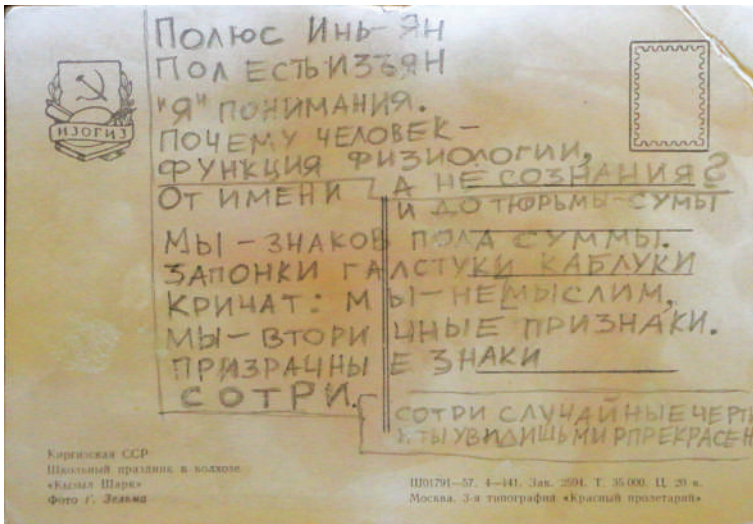 Полюс Инь-Ян
Пол есть изъян
"Я" понимания.
Почему человек-
функция физиологии,
а не сознания?
От имени и до тюрьмы-сумы
Мы-знаков пола суммы.
Запонки галстуки каблуки
кричат: мы-немыслим,
мы-вторичные признаки.
призрачные знаки
сотри.
сотри случайные черты
и ты увидишь мир прекрасен
ИЗОГИЗ
Киргизская ССР
Школьный праздник в колхозе
«Кызыл Шарк»
Фото Г. Зельма
Ш01791—57. 4—141. Зак. 2594. Т. 35 000. Ц. 20 к.
Москва. 3-я типография «Красный пролетарий»